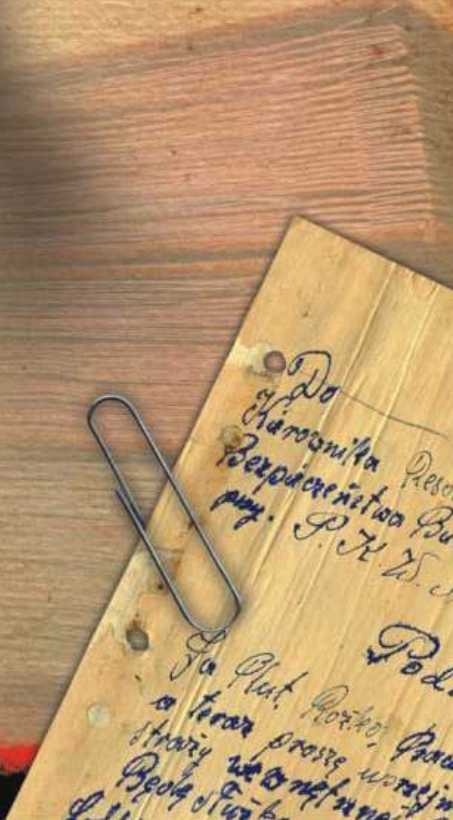 Do
Kierownika Reso
Bezpieczeństwa Bu
przy. P. K W.
Pod
Ja Plut.
a teraz proszę uprzejm
straży wewnętrznej
Będę służ